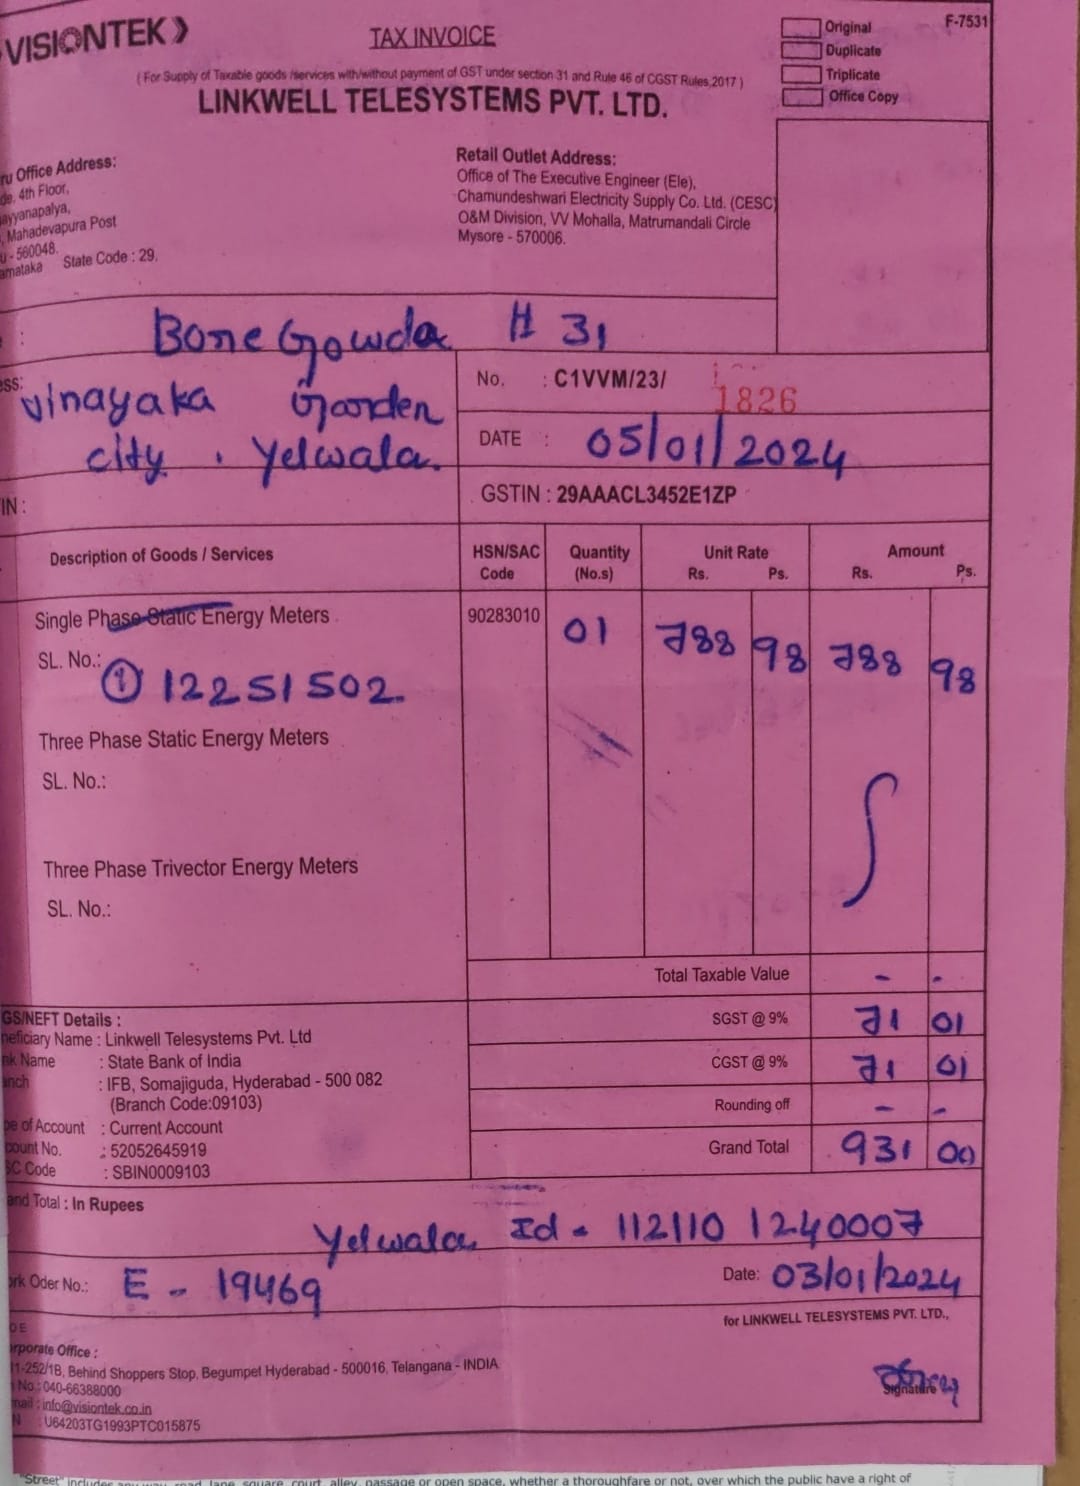 VISIONTEK
TAX INVOICE
Original
F-7531
Duplicate
Triplicate
Office Copy
( For Supply of Taxable goods /services with/without payment of GST under section 31 and Rule 46 of CGST Rules,2017 )
LINKWELL TELESYSTEMS PVT. LTD.
ru Office Address:
de, 4th Floor,
ayyanapalya,
, Mahadevapura Post
u - 560048.
arnataka State Code : 29.
Retail Outlet Address:
Office of The Executive Engineer (Ele),
Chamundeshwari Electricity Supply Co. Ltd. (CESC)
O&M Division, VV Mohalla, Matrumandali Circle
Mysore - 570006.
: Bore Gowda H 31
ess: vinayaka Garden
city . Yelwala.
No. : C1VVM/23/ 1826
DATE : 05/01/2024
IN :
GSTIN : 29AAACL3452E1ZP
Description of Goods / Services HSN/SAC Code Quantity (No.s) Unit Rate Rs. Ps. Amount Rs. Ps.
Single Phase Static Energy Meters 90283010 01 788 98 788 98
SL. No.: ① 12251502.
Three Phase Static Energy Meters
SL. No.:
Three Phase Trivector Energy Meters
SL. No.:
Total Taxable Value - -
SGST @ 9% 71 01
CGST @ 9% 71 01
Rounding off - -
Grand Total 931 00
GS/NEFT Details :
neficiary Name : Linkwell Telesystems Pvt. Ltd
nk Name : State Bank of India
anch : IFB, Somajiguda, Hyderabad - 500 082
(Branch Code:09103)
pe of Account : Current Account
count No. : 52052645919
SC Code : SBIN0009103
and Total : In Rupees
Yelwala Id - 112110 1240007
ork Oder No.: E - 19469
Date: 03/01/2024
for LINKWELL TELESYSTEMS PVT. LTD.,
DE
orporate Office :
1-252/1B, Behind Shoppers Stop, Begumpet Hyderabad - 500016, Telangana - INDIA
No : 040-66388000
mail : info@visiontek.co.in
N : U64203TG1993PTC015875
Signature
"Street" includes any way, road, lane, square, court, alley, passage or open space, whether a thoroughfare or not, over which the public have a right of